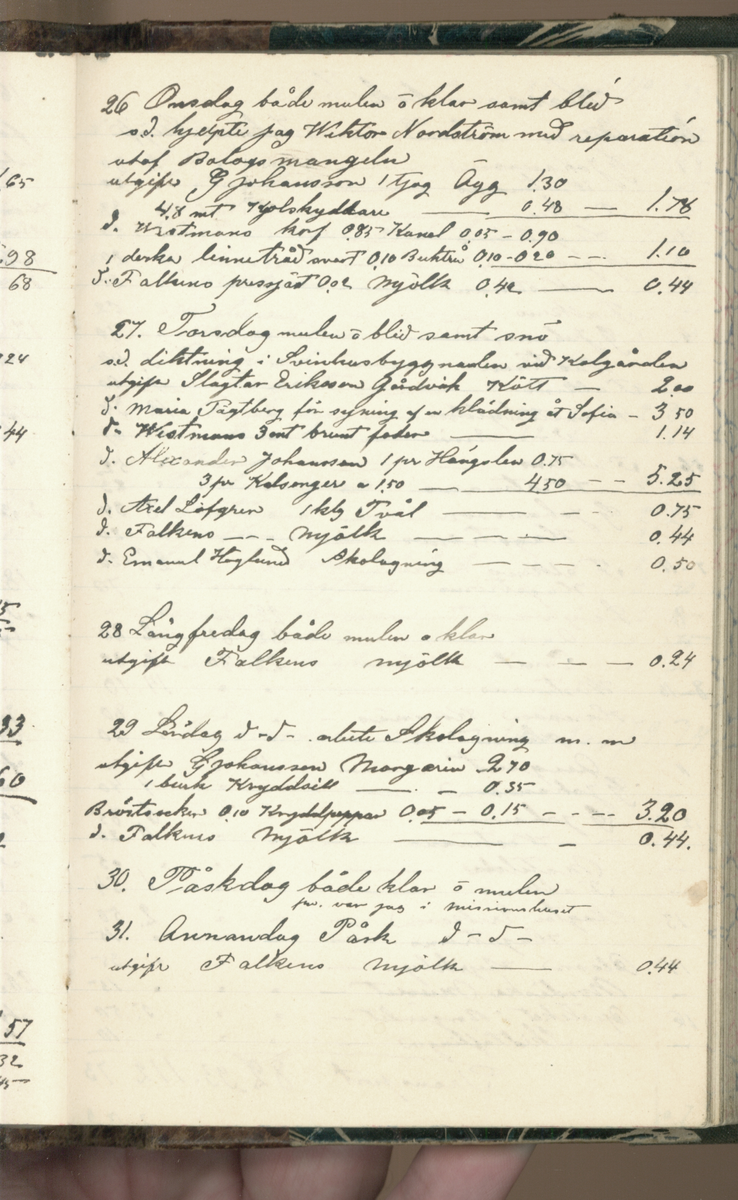 65
98
68
24
44
93
60
57
32
45
26 Onsdag både mulen ō klar samt blid
s.d. hjelpte jag Wiktor Nordström med reparation
utaf Bolags mangeln
utgift G Johansson 1 tjog Ägg 1.30
4,8 mt Kolskyddare — 0.48 — 1.78
d. Westmans korf 0.85 Kanel 0.05 - 0.90
1 docka linnetråd svart 0,10 0,10 - 0.20 — 1.10
d. Falkens pressjäst 0.02 Mjölk 0.42 — 0.44
27. Torsdag mulen ō blid samt snö
s.d. diktning i Svinhusbyggnaden vid Kolgården
utgift Slagtar Eriksson Gårdvik Kött — 2.00
d. Maria Tägtberg för syning af en klädning åt Sofia - 3 50
d. Westmans 3 brunt foder — 1.14
d. Alexander Johansson 1 pr Hängslen 0.75
3 pr Kalsonger a 1.50 — 4.50 - - 5.25
d. Axel Löfgren 1 klg Tvål — - - 0.75
d. Falkens — - - Mjölk — — — - 0.44
d. Emanuel Haglund Skolagning — — — - 0.50
28 Långfredag både mulen o klar
utgift Falkens mjölk — - — 0.24
29 Lördag d - d - . arbete Skolagning m. m
utgift G Johansson Margarin 2 70
1 burk Kryddsill — - 0.35
Bröstsocker 0.10 Kryddpeppar 0.05 - 0.15 - - - - 3.20
d. Falkens Mjölk — - 0.44.
30. Påskdag både klar ō mulen
var jag i missionshuset
31. Annandag Påsk d - d -
utgift Falkens Mjölk — 0.44